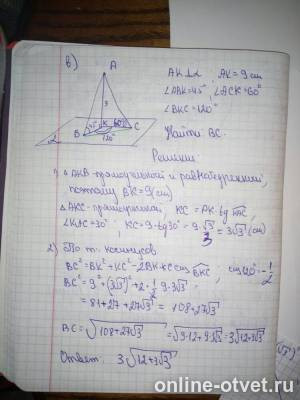 в)
A
9
45°
K
60°
B
C
120°
α
AK⊥α ; AK=9 cm
∠ABK=45°, ∠ACK=60°
∠BKC=120°
Найти: BC.
Решение:
1) △AKB-прямоугольный и равнобедренный,
поэтому BK=9(cm)
△AKC-прямоугольный, KC = AK·tg KAC,
∠KAC=30° KC=9·tg30°=9·√3/3=3√3(cm)
2) По т. косинусов
BC²=BK²+KC²-2BK·KC cos BKC, cos120°=-1/2
BC²=9²+(3√3)²+2·1/2·9·3√3=
=81+27+27√3=108+27√3
BC=√108+27√3=√9·12+9·3√3=3√12+3√3
Ответ: 3√12+3√3
online-otvet.ru